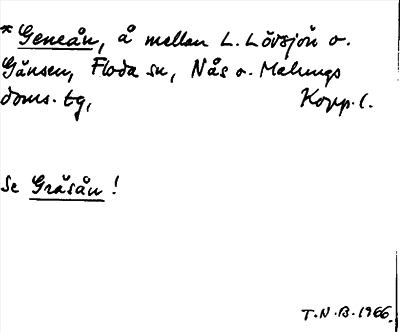 * Geneån, å mellan L. Lövsjön o.
Gänsen, Floda sn, Nås o. Malungs
doms. tg, Kopp. l.
Se Gräsån !
T.N.B. 1966.